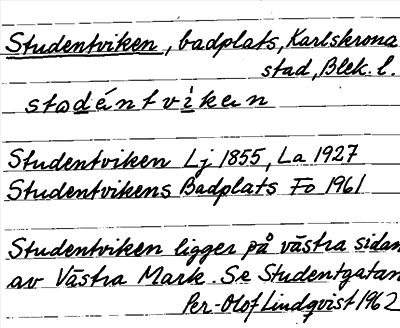 Studentviken, badplats, Karlskrona
stad, Blek. l.
stodéntvìken
Studentviken Lj 1855, La 1927
Studentvikens Badplats Fo 1961
Studentviken ligger på västra sidan
av Västra Mark. Se Studentgatan
Per-Olof Lindqvist 1962